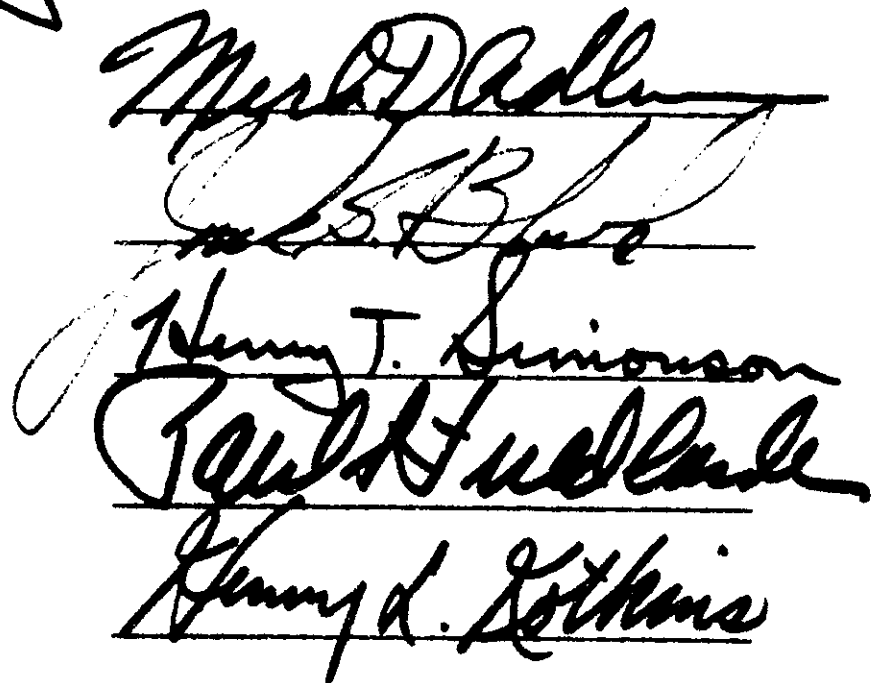 Merle D Adlum
Jack S. Block
Henry T. Simonson
Paul S Friedlander
Henry L. Kotkins